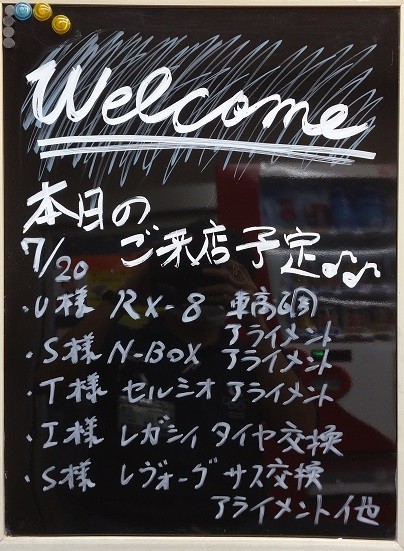 Welcome
本日の
7/20 ご来店予定♪♫
・U様 RX-8 車高調
アライメント
・S様 N-BOX アライメント
・T様 セルシオ アライメント
・I様 レガシィ タイヤ交換
・S様 レヴォーグ サス交換
アライメント 他